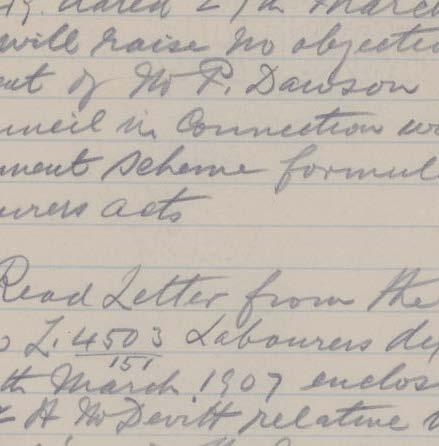 dated 27th March
will raise no objectio
ent of Mr P. Dawson
uncil in Connection w
ment Scheme formul
urers acts
Read Letter from the
o L. 4503 Labourers de
151
th March 1907 enclos
H McDevitt relative